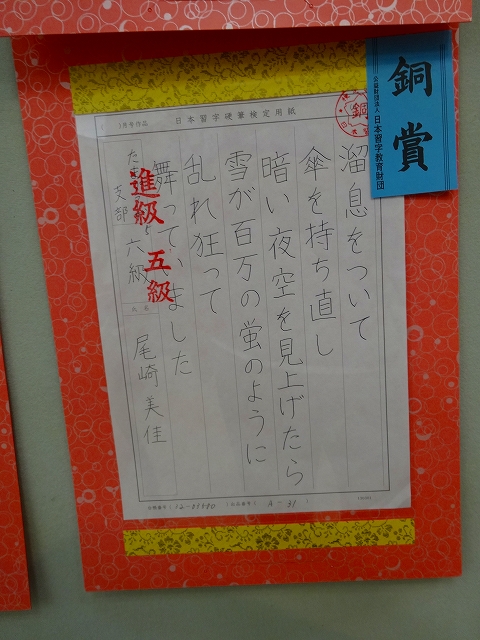 銅賞
公益財団法人 日本習字教育財団
日本習字硬筆検定用紙
銅
溜息をついて
傘を持ち直し
暗い夜空を見上げたら
雪が百万の蛍のように
乱れ狂って
舞っていました
進級 五級
支部
六級
氏名
尾崎美佳